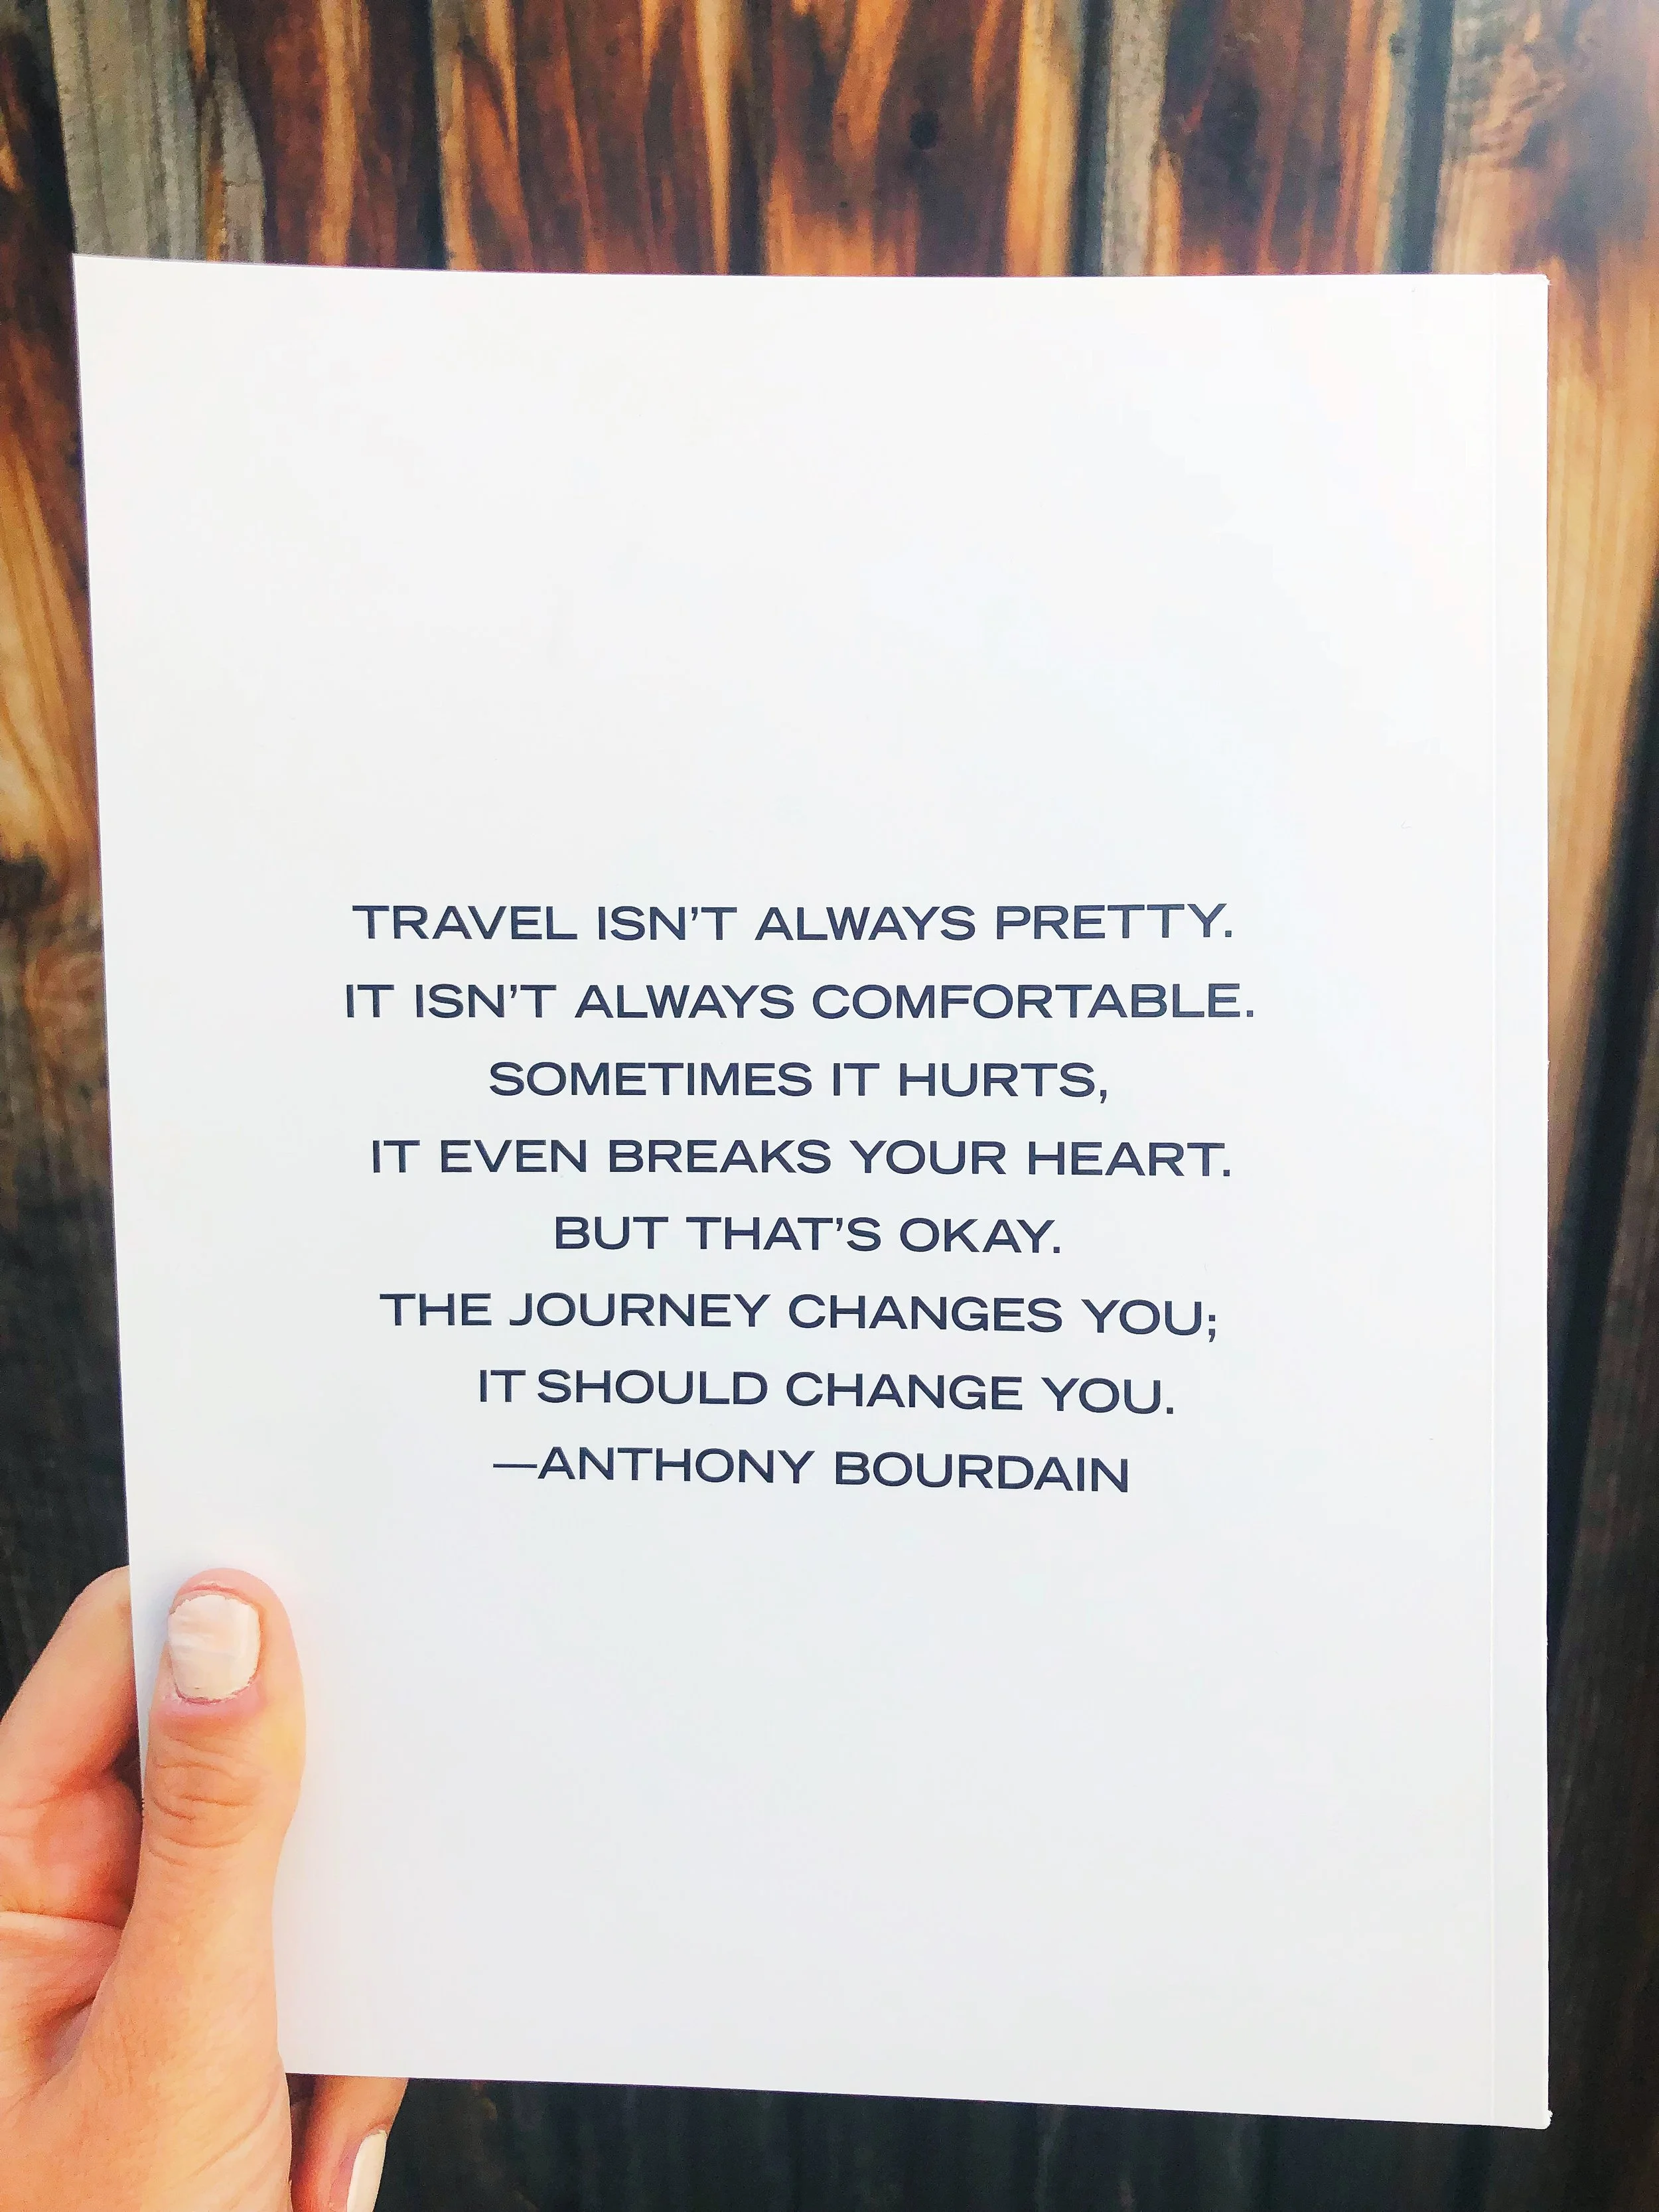 TRAVEL ISN'T ALWAYS PRETTY.
IT ISN'T ALWAYS COMFORTABLE.
SOMETIMES IT HURTS,
IT EVEN BREAKS YOUR HEART.
BUT THAT'S OKAY.
THE JOURNEY CHANGES YOU;
IT SHOULD CHANGE YOU.
—ANTHONY BOURDAIN